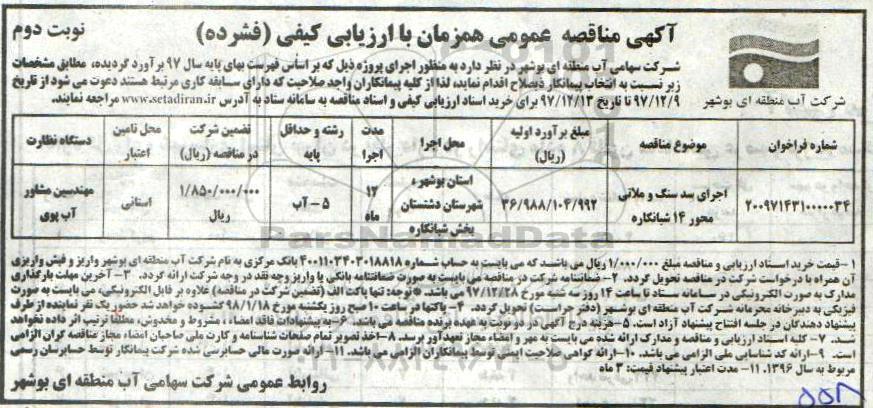 آگهی مناقصه عمومی همزمان با ارزیابی کیفی (فشرده)
نوبت دوم
شرکت آب منطقه ای بوشهر
شرکت سهامی آب منطقه ای بوشهر در نظر دارد به منظور اجرای پروژه ذیل که بر اساس فهرست بهای پایه سال ۹۷ برآورد گردیده، مطابق مشخصات
زیر نسبت به انتخاب پیمانکار ذیصلاح اقدام نماید، لذا از کلیه پیمانکاران واجد صلاحیت که دارای سابقه کاری مرتبط هستند دعوت می شود از تاریخ
۹۷/۱۲/۹ تا تاریخ ۹۷/۱۲/۱۳ برای خرید اسناد ارزیابی کیفی و اسناد مناقصه به سامانه ستاد به آدرس www.setadiran.ir مراجعه نمایند.
شماره فراخوان | موضوع مناقصه | مبلغ برآورد اولیه (ریال) | محل اجرا | مدت اجرا | رشته و حداقل پایه | تضمین شرکت در مناقصه (ریال) | محل تامین اعتبار | دستگاه نظارت
۲۰۰۹۷۱۴۳۱۰۰۰۰۳۴ | اجرای سد سنگ و ملاتی محور ۱۴ شبانکاره | ۳۶/۹۸۸/۱۰۴/۹۹۲ | استان بوشهر، شهرستان دشتستان بخش شبانکاره | ۱۲ ماه | ۵ - آب | ۱/۸۵۰/۰۰۰/۰۰۰ ریال | استانی | مهندسین مشاور آب پوی
۱- قیمت خرید اسناد ارزیابی و مناقصه مبلغ ۱/۰۰۰/۰۰۰ ریال می باشند که می بایست به حساب شماره ۴۰۰۱۱۰۳۴۰۳۰۱۸۸۱۸ بانک مرکزی به نام شرکت آب منطقه ای بوشهر واریز و فیش واریزی
آن همراه با درخواست شرکت در مناقصه تحویل گردد. ۲- ضمانتنامه شرکت در مناقصه می بایست به صورت ضمانتنامه بانکی یا واریز وجه نقد در وجه شرکت ارائه گردد. ۳- آخرین مهلت بارگذاری
مدارک به صورت الکترونیکی در سامانه ستاد تا ساعت ۱۴ روز سه شنبه مورخ ۹۷/۱۲/۲۸ می باشد. (توجه: تنها پاکت الف (تضمین شرکت در مناقصه) علاوه بر فایل الکترونیکی، می بایست به صورت
فیزیکی به دبیرخانه محرمانه شرکت آب منطقه ای بوشهر (دفتر حراست) تحویل گردد. ۴- پاکتها در ساعت ۱۰ صبح روز یکشنبه مورخ ۹۸/۱/۱۸ گشوده خواهد شد حضور یک نفر نماینده از طرف
پیشنهاد دهندگان در جلسه افتتاح پیشنهاد آزاد است. ۵- هزینه درج آگهی در دو نوبت به عهده برنده مناقصه می باشد. ۶- به پیشنهادات فاقد امضاء، مشروط و مخدوش، مطلقا ترتیب اثر داده نخواهد
شد. ۷- کلیه اسناد ارزیابی و مناقصه و مدارک ارائه شده می بایست به مهر و امضاء مجاز تعهدآور برسد. ۸- اخذ تصویر تمام صفحات شناسنامه و کارت ملی صاحبان امضاء مجاز مناقصه گران الزامی
است. ۹- ارائه کد شناسایی ملی الزامی می باشد. ۱۰- ارائه گواهی صلاحیت ایمنی توسط پیمانکاران الزامی می باشد. ۱۱- ارائه صورت مالی حسابرسی شده شرکت پیمانکار توسط حسابرسان رسمی
مربوط به سال ۱۳۹۶. ۱۱- مدت اعتبار پیشنهاد قیمت: ۳ ماه
روابط عمومی شرکت سهامی آب منطقه ای بوشهر
ParsNamadData
۵۵۸